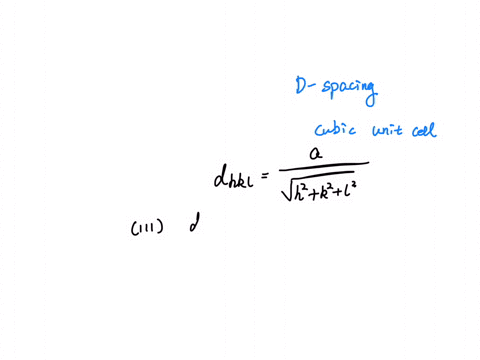 D-spacing
cubic unit cell
d_{hkl} = \frac{a}{\sqrt{h^2+k^2+l^2}}
(111) d